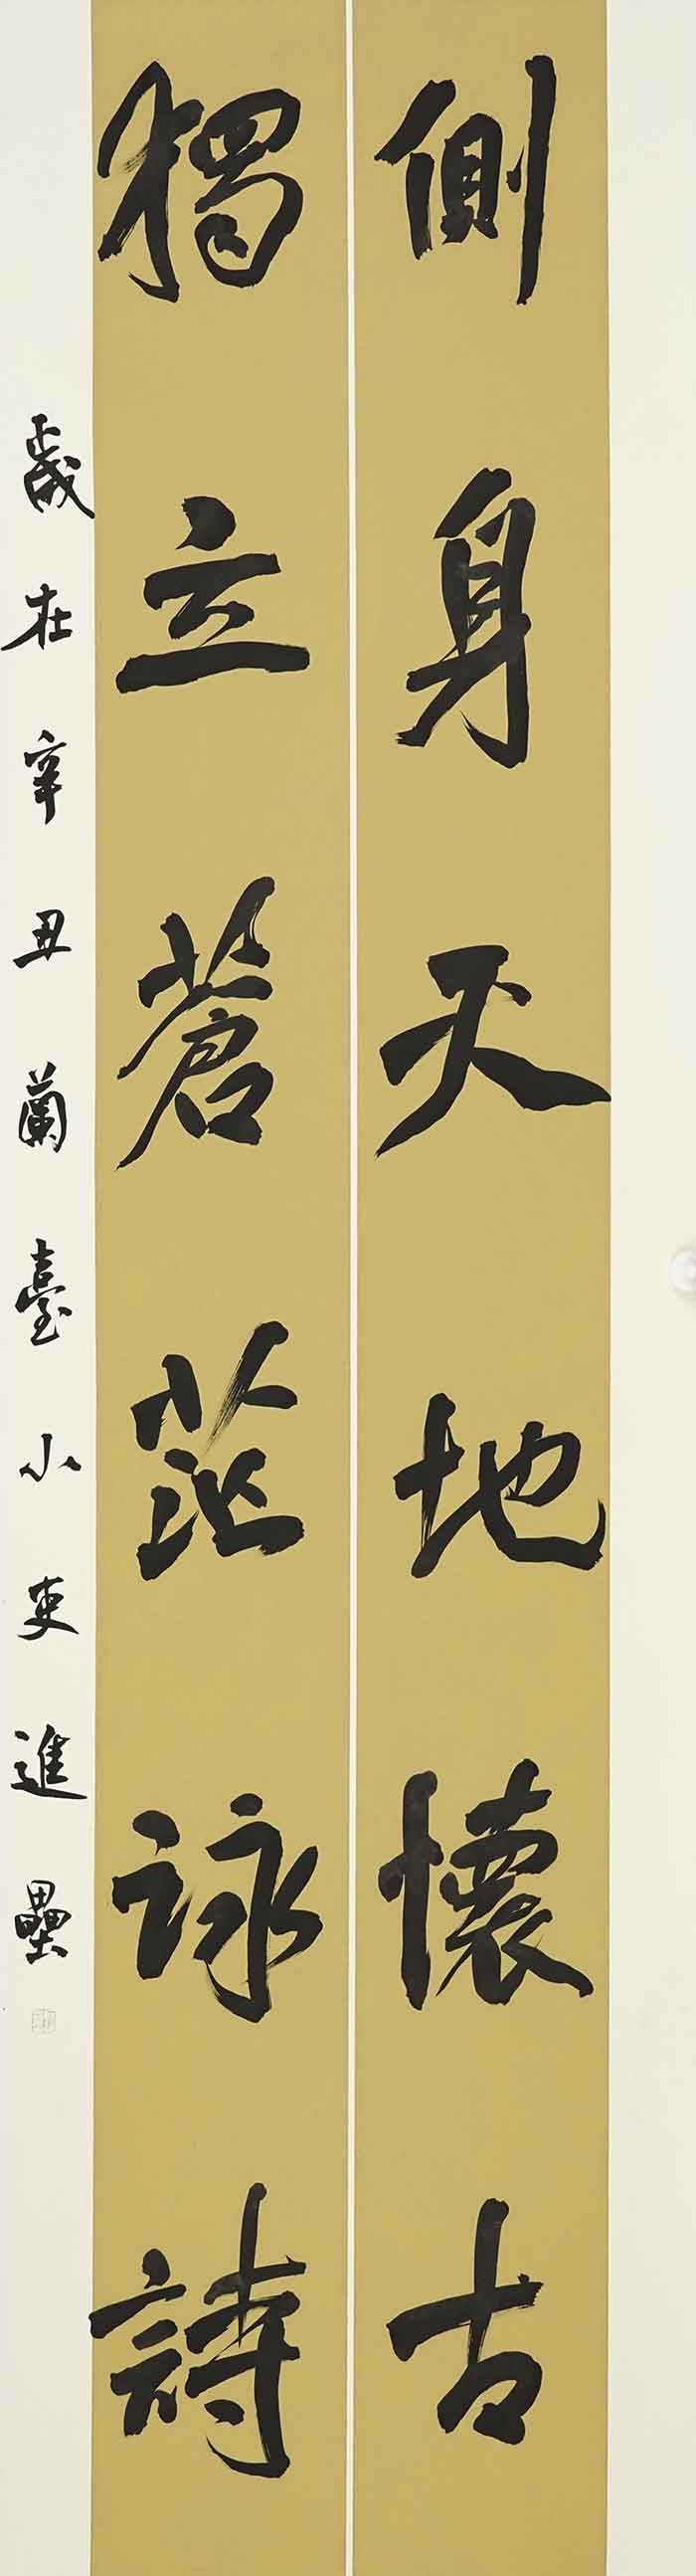 側身天地懷古
獨立蒼茫詠詩
歲在辛丑蘭臺小吏進壘